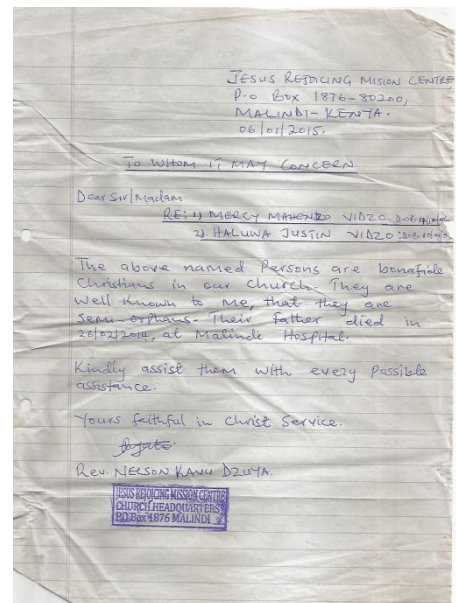 JESUS REJOICING MISION CENTRE
P.o Box 1876-80200,
MALINDI-KENYA.
06/01/2015.
TO WHOM IT MAY CONCERN.
Dear Sir/Madam
RE: 1) MERCY MAHENZO VIDZO D.O.B:
2) HALUWA JUSTIN VIDZO: D.O.B:
The above named Persons are bonafide
Christians in our church. They are
Well Known to Me, that they are
Semi-orphans. Their Father died in
26/02/2014, at Malindi Hospital.
Kindly assist them with every Possible
assistance.
Yours faithful in Christ Service.
Rev. NELSON KAVU DZUYA.
JESUS REJOICING MISSION CENTRE
CHURCH HEADQUARTERS
P.O. Box 1876 MALINDI